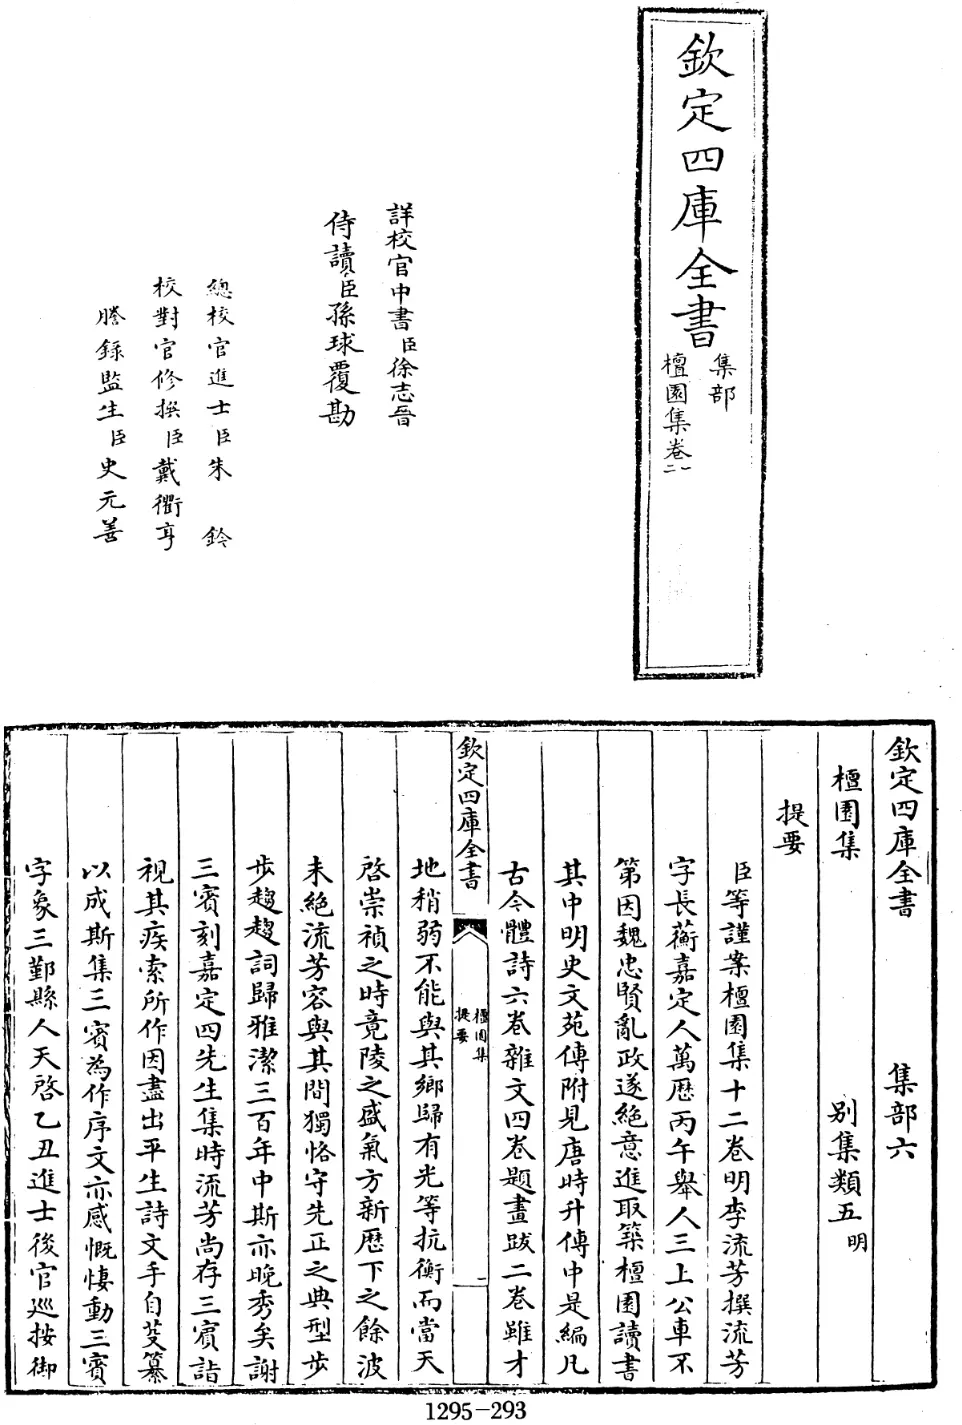 欽定四庫全書
集部
檀園集卷一
二
詳校官中書臣徐志晉
侍讀臣孫球覆勘
總校官進士臣朱鈐
校對官修撰臣戴衢亨
謄錄監生臣史元善
欽定四庫全書 集部六
檀園集 别集類五明
提要
臣等謹案檀園集十二卷明李流芳撰流芳
字長蘅嘉定人萬歷丙午舉人三上公車不
第因魏忠賢亂政遂絶意進取築檀園讀書
其中明史文苑傳附見唐時升傳中是編凡
古今體詩六卷雜文四卷題畫跋二卷雖才
欽定四庫全書
檀園集
提要
一
地稍弱不能與其鄉歸有光等抗衡而當天
啓崇禎之時竟陵之盛氣方新歷下之餘波
未絶流芳容與其間獨恪守先正之典型步
步趨趨詞歸雅潔三百年中斯亦晚秀矣謝
三賓刻嘉定四先生集時流芳尚存三賓詣
視其疾索所作因盡出平生詩文手自芟纂
以成斯集三賓為作序文亦感慨悽動三賓
字象三鄞縣人天啓乙丑進士後官巡按御
1295-293